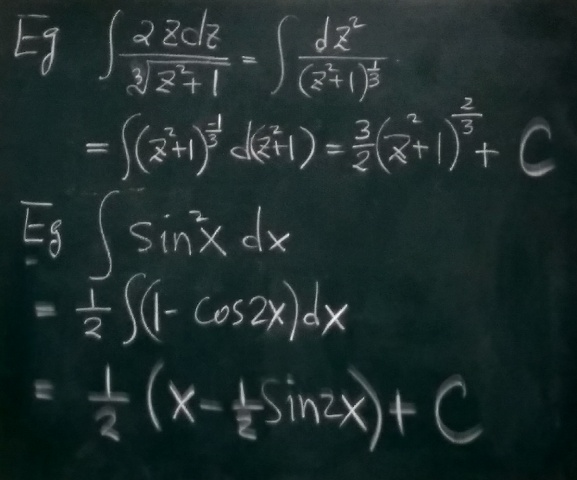 Eg ∫ 2zdz / ∛(z²+1) = ∫ dz² / (z²+1)^(1/3)
= ∫(z²+1)^(-1/3) d(z²+1) = 3/2 (z²+1)^(2/3) + C
Eg ∫ sin²x dx
= 1/2 ∫(1 - cos2x)dx
= 1/2 (x - 1/2 Sin2x) + C